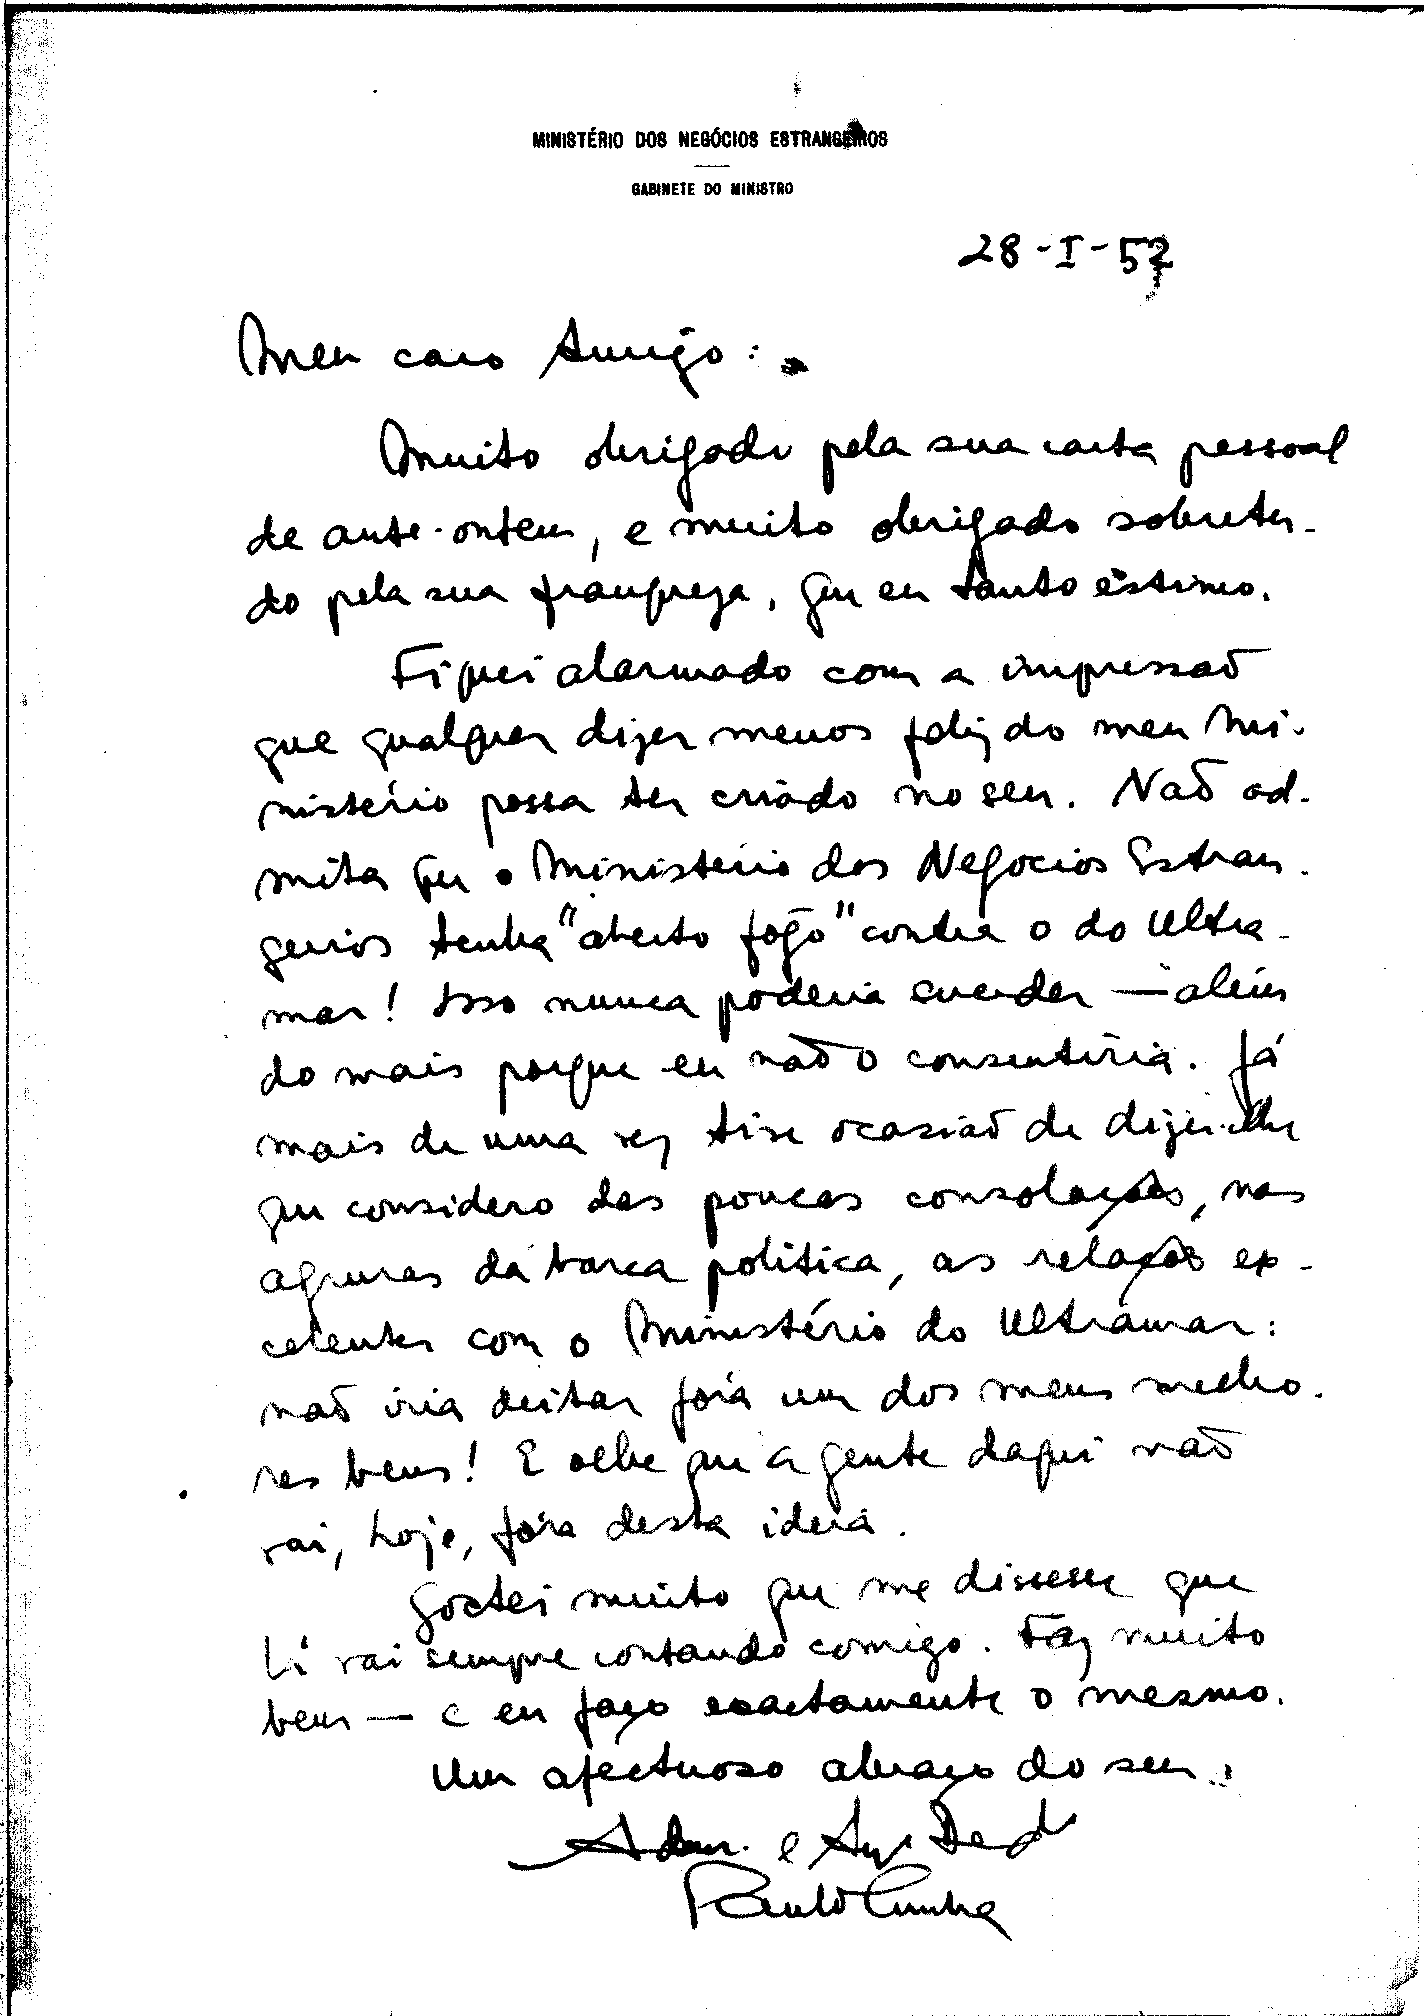 MINISTÉRIO DOS NEGÓCIOS ESTRANGEIROS
GABINETE DO MINISTRO
28-I-57
Meu caro Amigo:
Muito obrigado pela sua carta pessoal
de ante-ontem, e muito obrigado sobretu-
do pela sua franqueza, que eu tanto estimo.
Fiquei alarmado com a impressão
que qualquer dizer menos feliz do meu Mi-
nistério possa ter criado no seu. Não ad-
mita que o Ministério dos Negocios Estran-
geiros tenha "aberto fogo" contra o do Ultra-
mar! Isso nunca poderia suceder — além
do mais porque eu não o consentiria. Já
mais de uma vez tive ocasião de dizer-lhe
que considero das poucas consolações, nas
agruras da barca politica, as relações ex-
celentes com o Ministério do Ultramar:
não iria deitar fora um dos meus melho-
res bens! E olhe que a gente daqui não
vai, hoje, fora desta ideia.
Gostei muito que me dissesse que
lá vai sempre contando comigo. Faz muito
bem — e eu faço exactamente o mesmo.
Um afectuoso abraço do seu,
Adm. e Amº Ded
Paulo Cunha